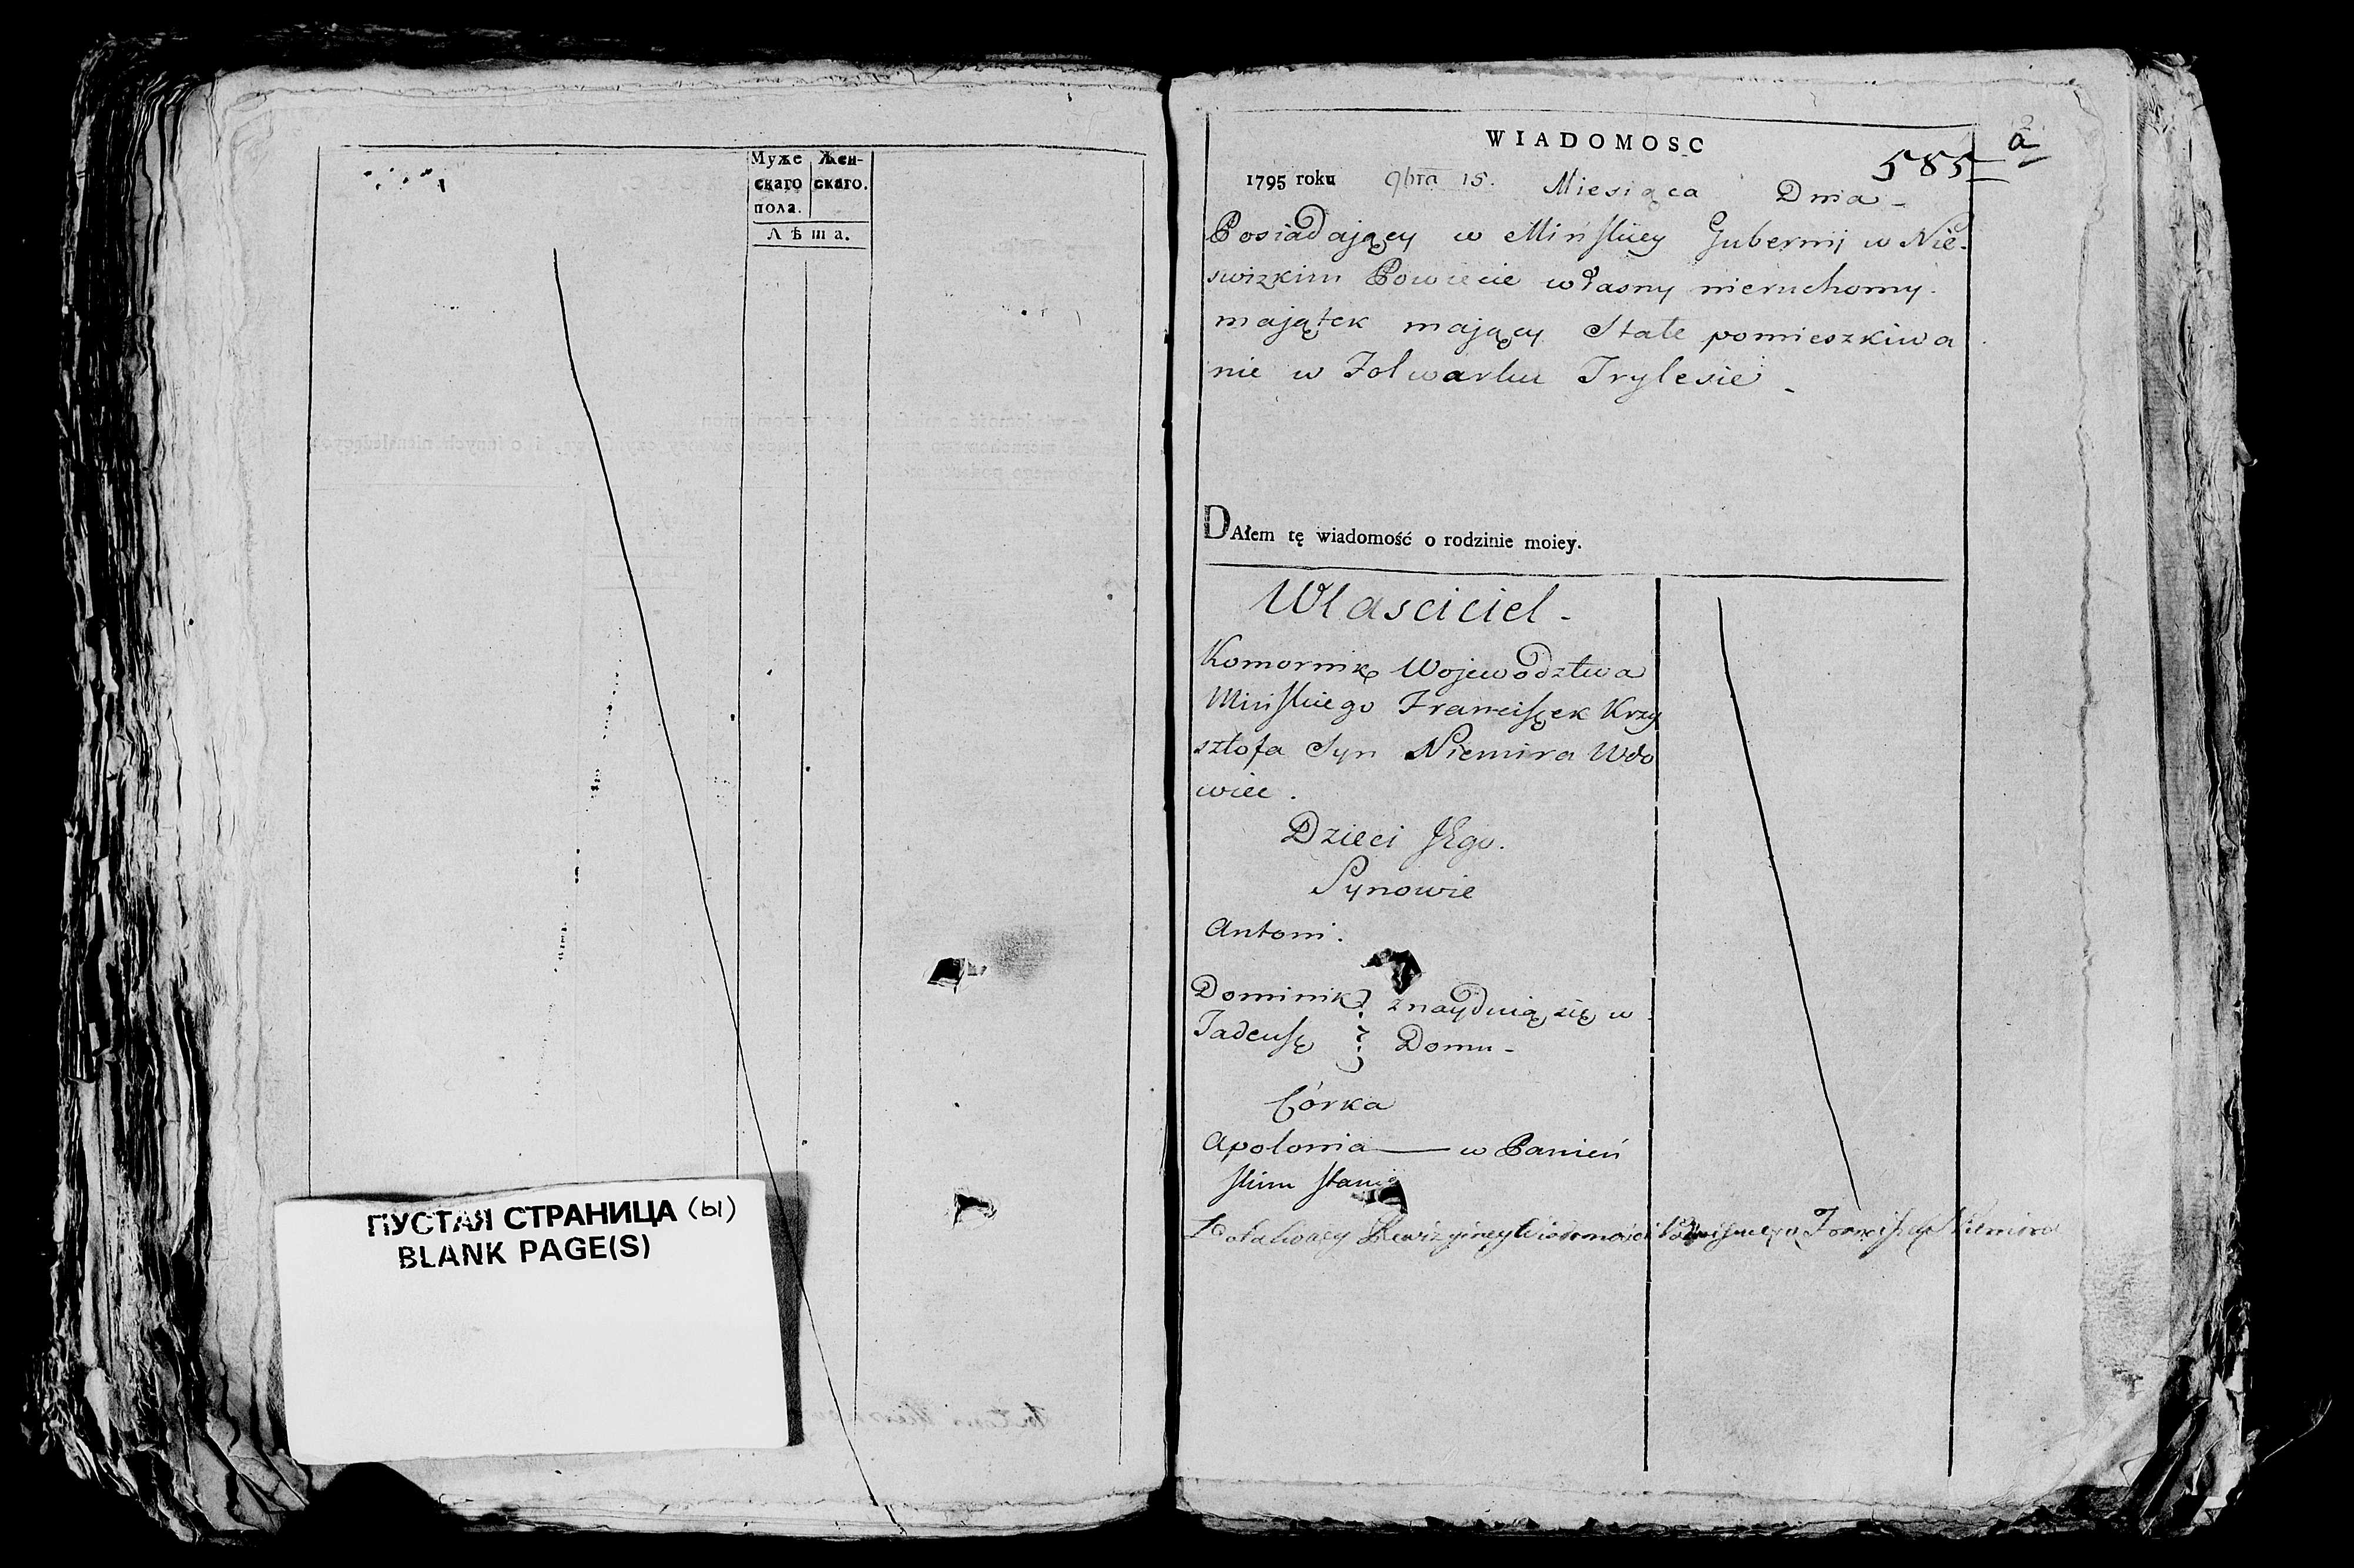 Муже Жен-
скаго скаго.
пола.
Лѣта.
ПУСТАЯ СТРАНИЦА (ы)
BLANK PAGE(S)
WIADOMOSC
585
1795 roku 9bra 15. Miesiąca Dnia
Posiadaiący w Mińskiey Gubernij w Nie-
swizkim Powiecie własny nieruchomy
majątek mający Stałe pomieszkiwa
nie w Folwarku Trylesie
DAłem tę wiadomość o rodzinie moiey.
Własciciel
Komornik Wojewodztwa
Mińskiego Franciszek Krzy
sztofa Syn Niemira Wdo
wiec.
Dzieci JEgo.
Synowie
Antoni.
Dominik znayduią się w
Tadeusz Domu
Córka
Apolonia w Panień
skim stanie
Rewizyiney Wiadomości Franciszek Niemira